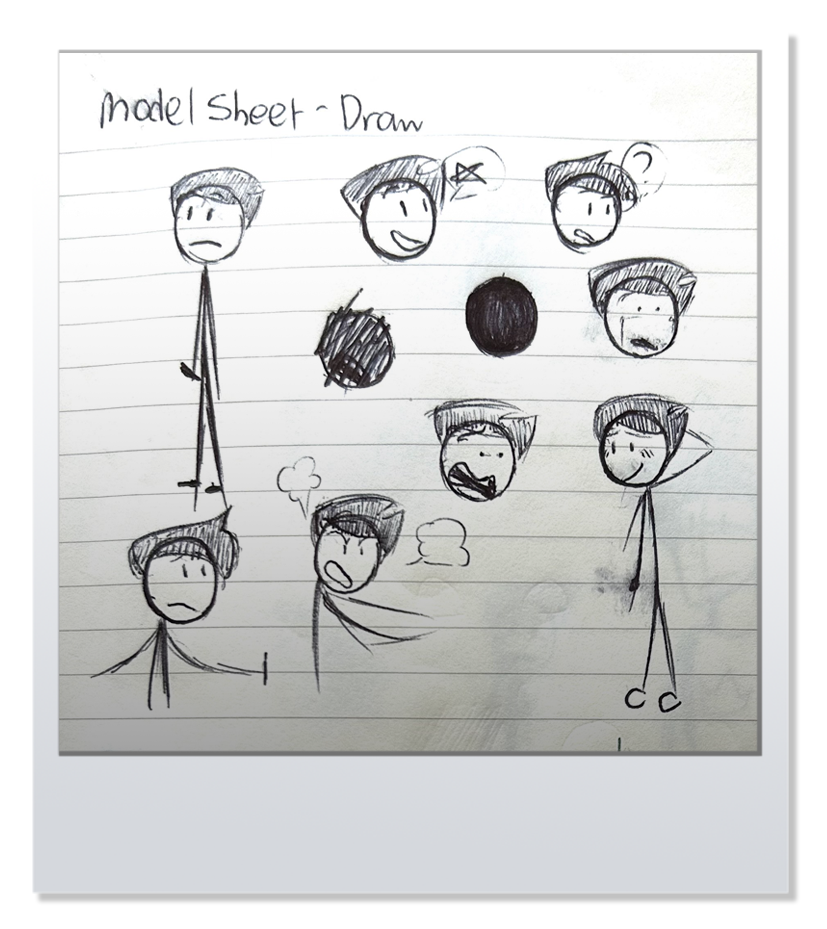 Model Sheet - Draw
?